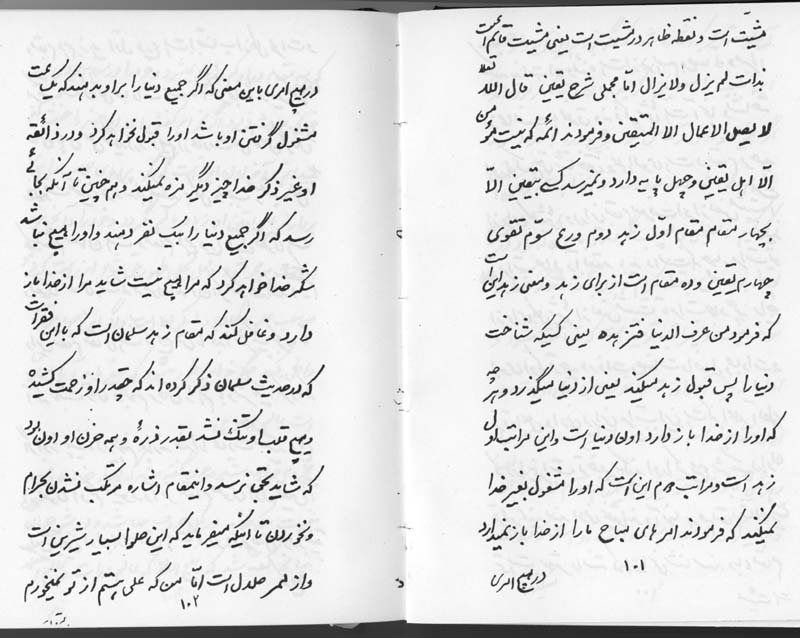 مشیت است و نقطه ظاهر در مشیت است یعنی مشیت قائم است
بذات لم یزل ولا یزال امّا مجملی شرح یقین قال الله تعا
لا یصل الاعمال الا المتیقنین و فرمودند ائمّه که نیست مؤمن
الّا اهل یقین و چهل پایه دارد و نمیرسد کسی بیقین الّا
بچهار مقام مقام اوّل زهد دوم ورع سوّم تقوی
چهارم یقین و ده مقام است از برای زهد و معنی زهد این است
که فرمود من عرف الدنیا فتزهده یعنی کسیکه شناخت
دنیا را پس قبول زهد میکند یعنی از دنیا میگذرد و هرچه
که او را از خدا باز دارد اون دنیا است و این مراتب اول
زهد است و مراتب دوم این است که او را مشغول بغیر خدا
نمیکند که فرمودند امرهای مباح ما را از خدا باز نمیدارد
۱۰۱
در هیچ امری
در هیچ امری باین معنی که اگر جمیع دنیا را براو بدهند که یکساعت
مشغول گرفتن او باشد او را قبول نخواهد کرد و در ذائقه
او غیر ذکر خدا چیز دیگر مزه نمیکند و هم چنین تا آنکه بجائی
رسد که اگر جمیع دنیا را بیک نفر دهند و او را هیچ نباشد
شکر خدا خواهد کرد که مرا هیچ نیست شاید مرا از خدا باز
دارد و غافل کند که مقام زهد سلمان است که با این فقرات
که در حدیث سلمان ذکر کرده اند که چقدر او زحمت کشیده
و هیچ قلب او تنگ نشد بقدر ذرهٔ و همه حزن او اون بود
که شاید بحق نرسد و اینمقام اشاره مرتکب نشدن بحرام
و نخوردن تا اینکه میفرماید که این حلوا بسیار شیرین است
و از ممر حلال است امّا من که علی هستم از تو نمیخورم
۱۰۲